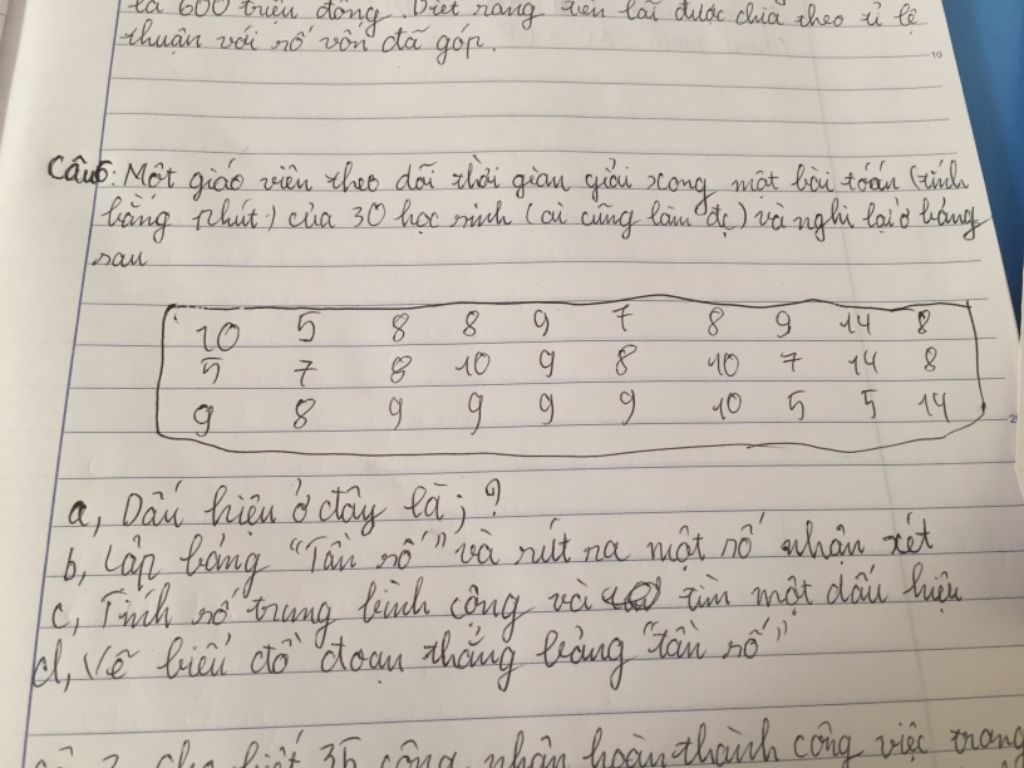 là 600 triệu đồng. Biết rằng tiền lãi được chia theo tỉ lệ
thuận với số vốn đã góp.
10
Câu6: Một giáo viên theo dõi thời gian giải xong một bài toán (tính
bằng phút) của 30 học sinh (ai cũng làm đc) và nghi lại ở bảng
sau
10 5 8 8 9 7 8 9 14 8
5 7 8 10 9 8 10 7 14 8
9 8 9 9 9 9 10 5 5 14
a, Dấu hiệu ở đây là; ?
b, Lập bảng "Tần số" và rút ra một số nhận xét
c, Tính số trung bình cộng và tìm một dấu hiệu
d, Vẽ biểu đồ đoạn thẳng bảng "tần số"
cho biết 35 công nhân hoàn thành công việc trong